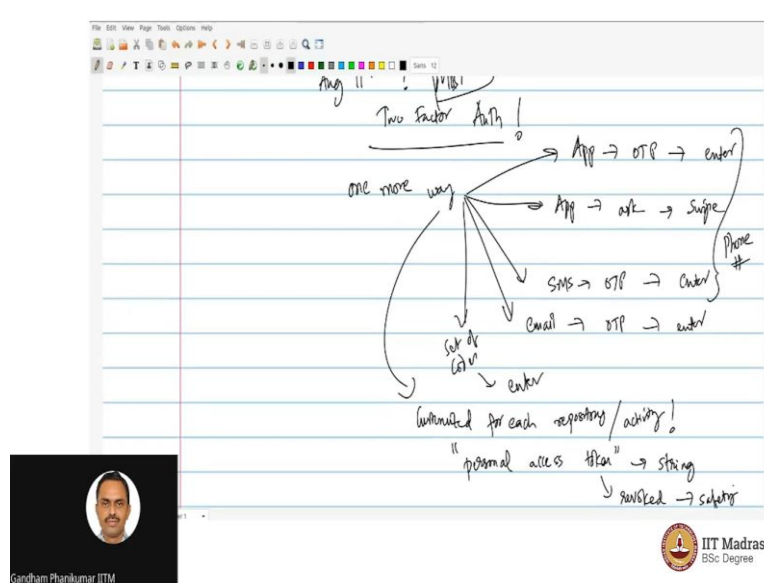 File Edit View Page Tools Options Help
Sans 12
Aug 11
Two Factor Auth!
one more way
App → OTP → enter
App → ask → Swipe
Phone
#
SMS → OTP → enter
email → OTP → enter
set of
codes
→ enter
for each repository / activity!
"personal access token" → string
→ revoked → safety
Gandham Phanikumar IITM
IIT Madras
BSc Degree